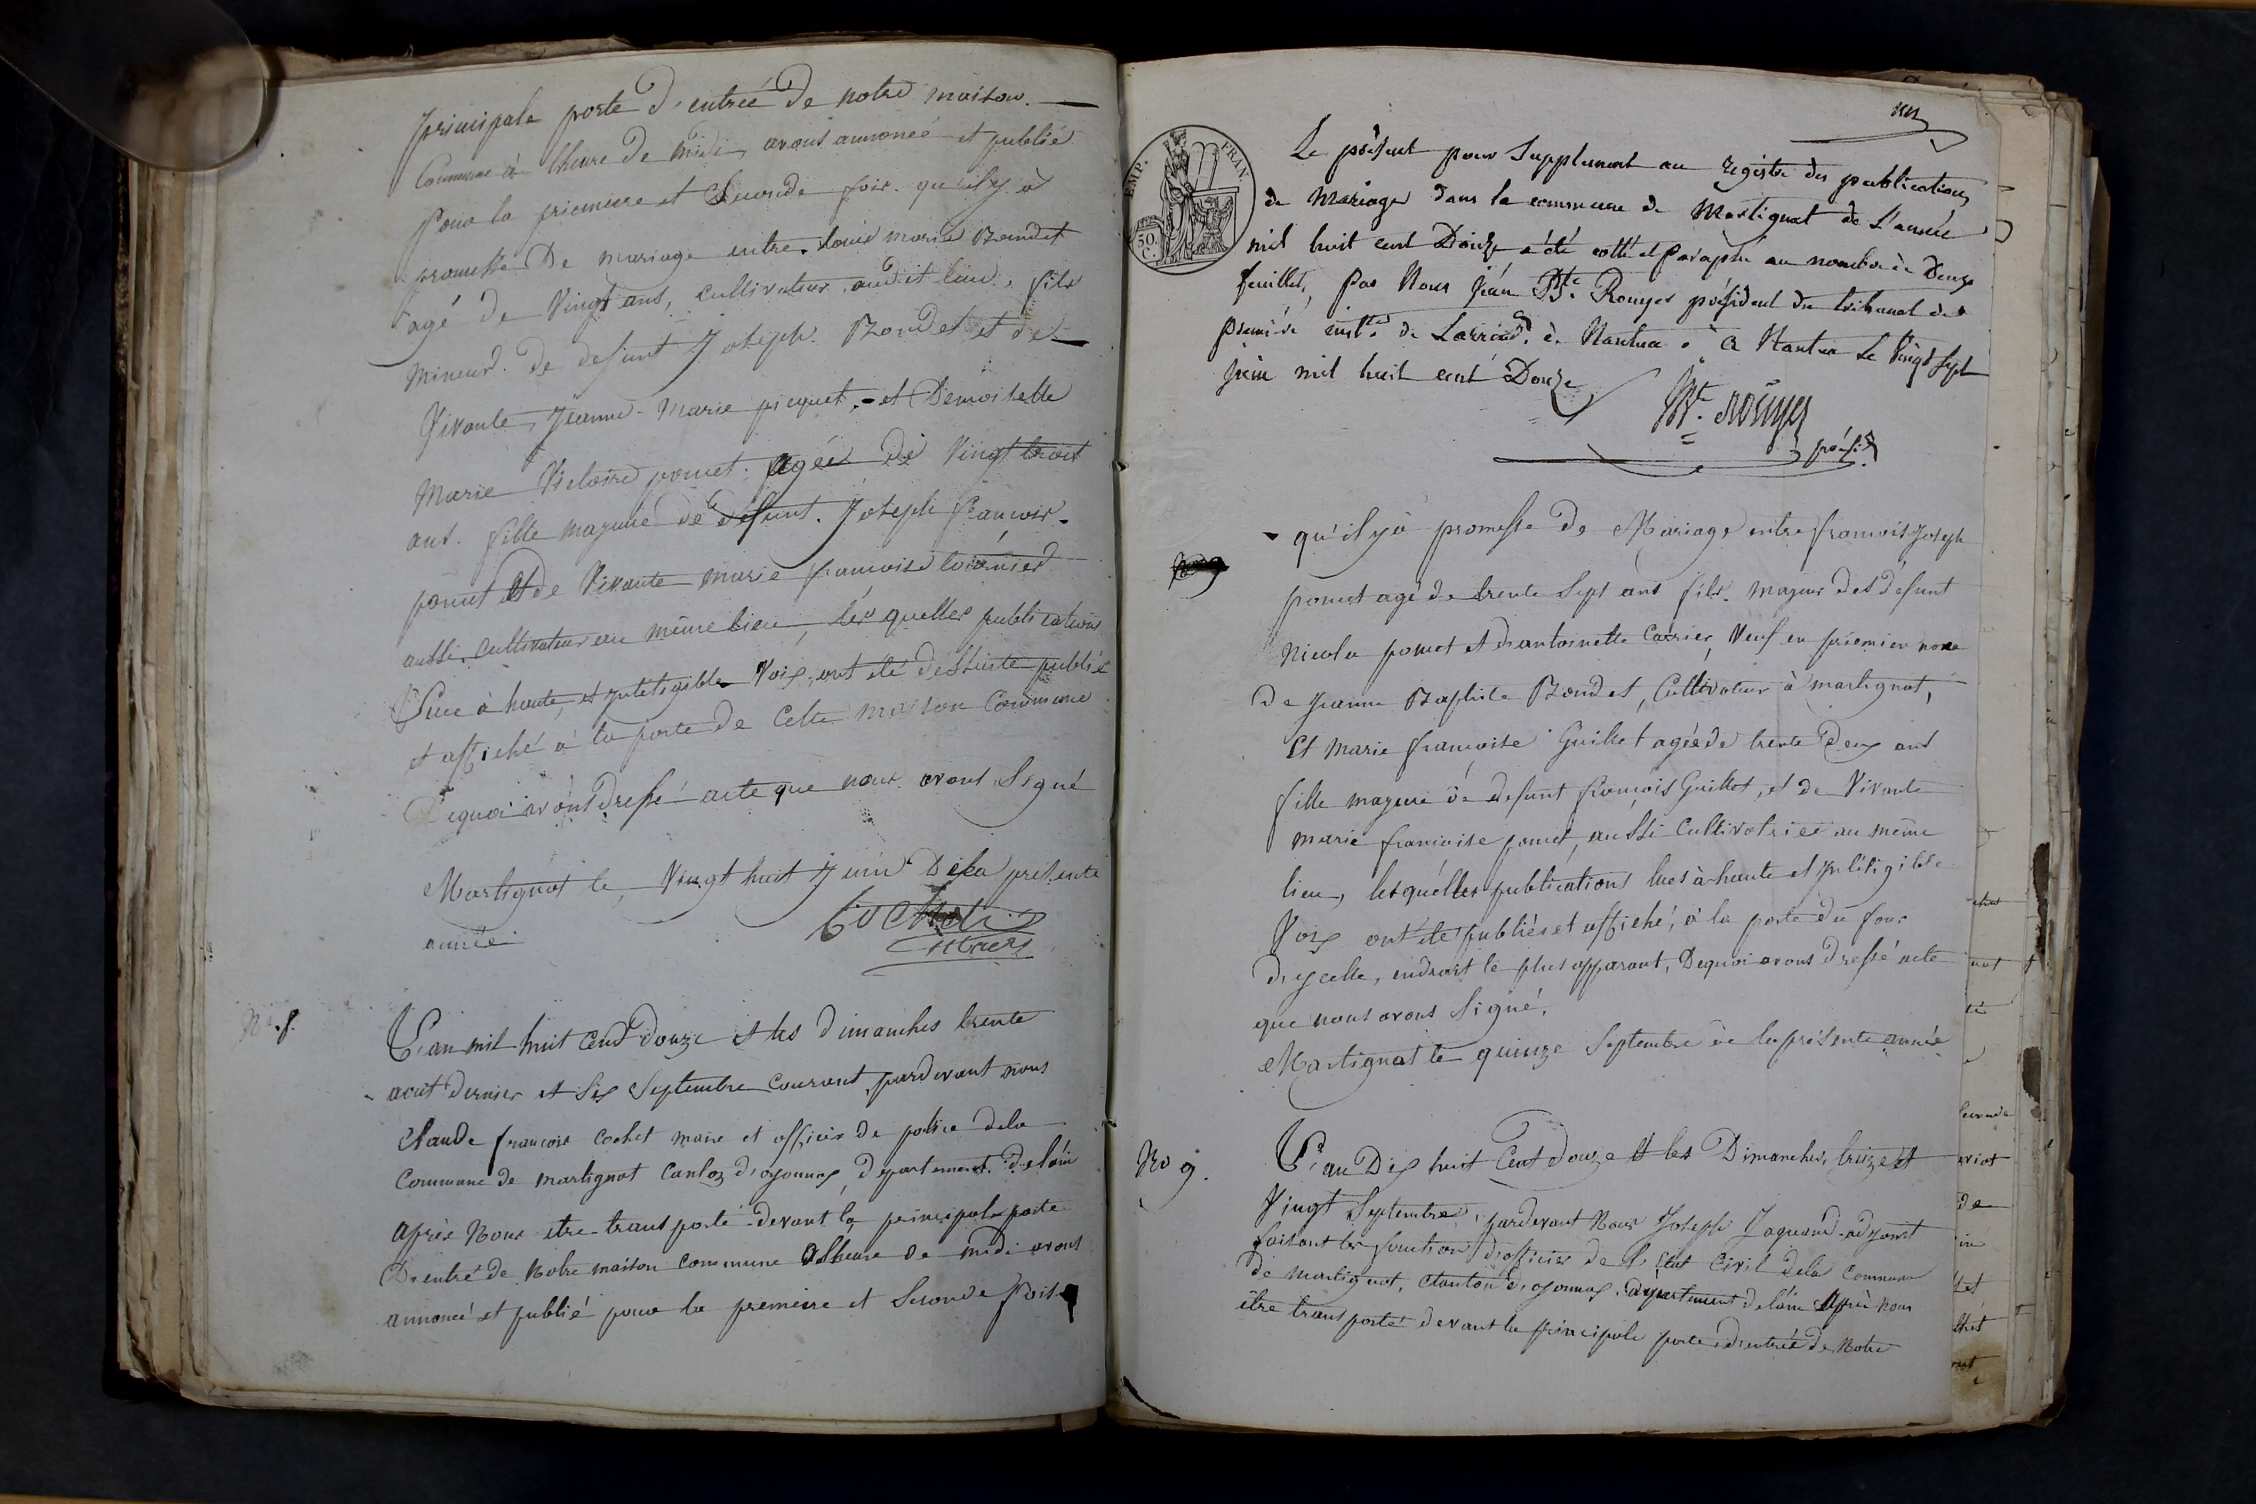 principale porte d'entrée de notre maison.
Commune à lheure de midi, avons annoncé et publié
pour la premiere et Seconde fois. qu'ily à
promesse De mariage entre. louis marie Bondet
agé de Vingt ans, cultivateur audit lieu, fils
mineur. de defunt Joseph. Bondet et de
Vivante, Jeanne-Marie picquet, et Demoiselle
Marie Victoire pomet. agée de Vingt trois
ans. fille majeure de defunt. Joseph francois.
pomet et de Vivante marie francoise
aussi. cultivateur au même lieu, les quelles publications
Lue à haute, et jntéligible Voix, ont été de suite publié
et affiché à la porte de cette maison Commune
Dequoi avons dressé acte que nous avons Signé
Martignat le, Vingt huit Juin Dela présente
année.
Cochet
maire
No. 8.
L'an mil huit Cent douze et les dimanches trente
aout dernier et Six Septembre courant, pardevant nous
Claude francois cochet maire et officier de police dela
Commune de martignat canton d'oyonnax, département delain
après Nous etre transporté devant la principale porte
D'entré de Notre maison commune à lheure de midi avons
annoncé et publié pour la premiere et Seconde fois
EMP. FRAN.
50.
C.
Le présent pour Supplement au registre des publications
de Mariage dans la commune de Martignat de L'année
mil huit cent Douze a été cotté et Paraphé au nombre de Deux
feuillets, par Nous Jéan Bte. Rouyer président du tribunal de
première inste. de Larrond. de Nantua. à Nantua Le Vingt Sept
Juin mil huit cent Douze
Bte. Rouyer
présid
qu'ilyà promesse de Mariage entre francois Joseph
pomet agé de trente Sept ans fils. majeur des défunt
Nicola pomet et d'antoinette Carrier, Veuf en premier noce
de Jeanne Baptiste Bondet, Cultivateur à martignat,
Et Marie françoise Guillot agée de trente deux ans
fille majeure de defunt françois Guillot, et de Vivante
marie francoise pomet, aussi Cultivatrice au même
lieu, lesquelles publications lues à haute et jntéligible
Voix ont été publiés et affiché, à la porte du four
d'ycelle, endroit le plus apparant, Dequoi avons dressé acte
que nous avons Signé.
Martignat le quinze Septembre de la présente année
No 9.
L'an Dix huit Cent douze et les Dimanches, treize et
Vingt Septembre, pardevant Nous Joseph Jaquand adjoint
faisant les fonctions d'officier de L'état Civil dela Commune
de Martignat, Canton d'oyonnax, département delain Après nous
être transporté devant la principale porte d'entrée de Notre